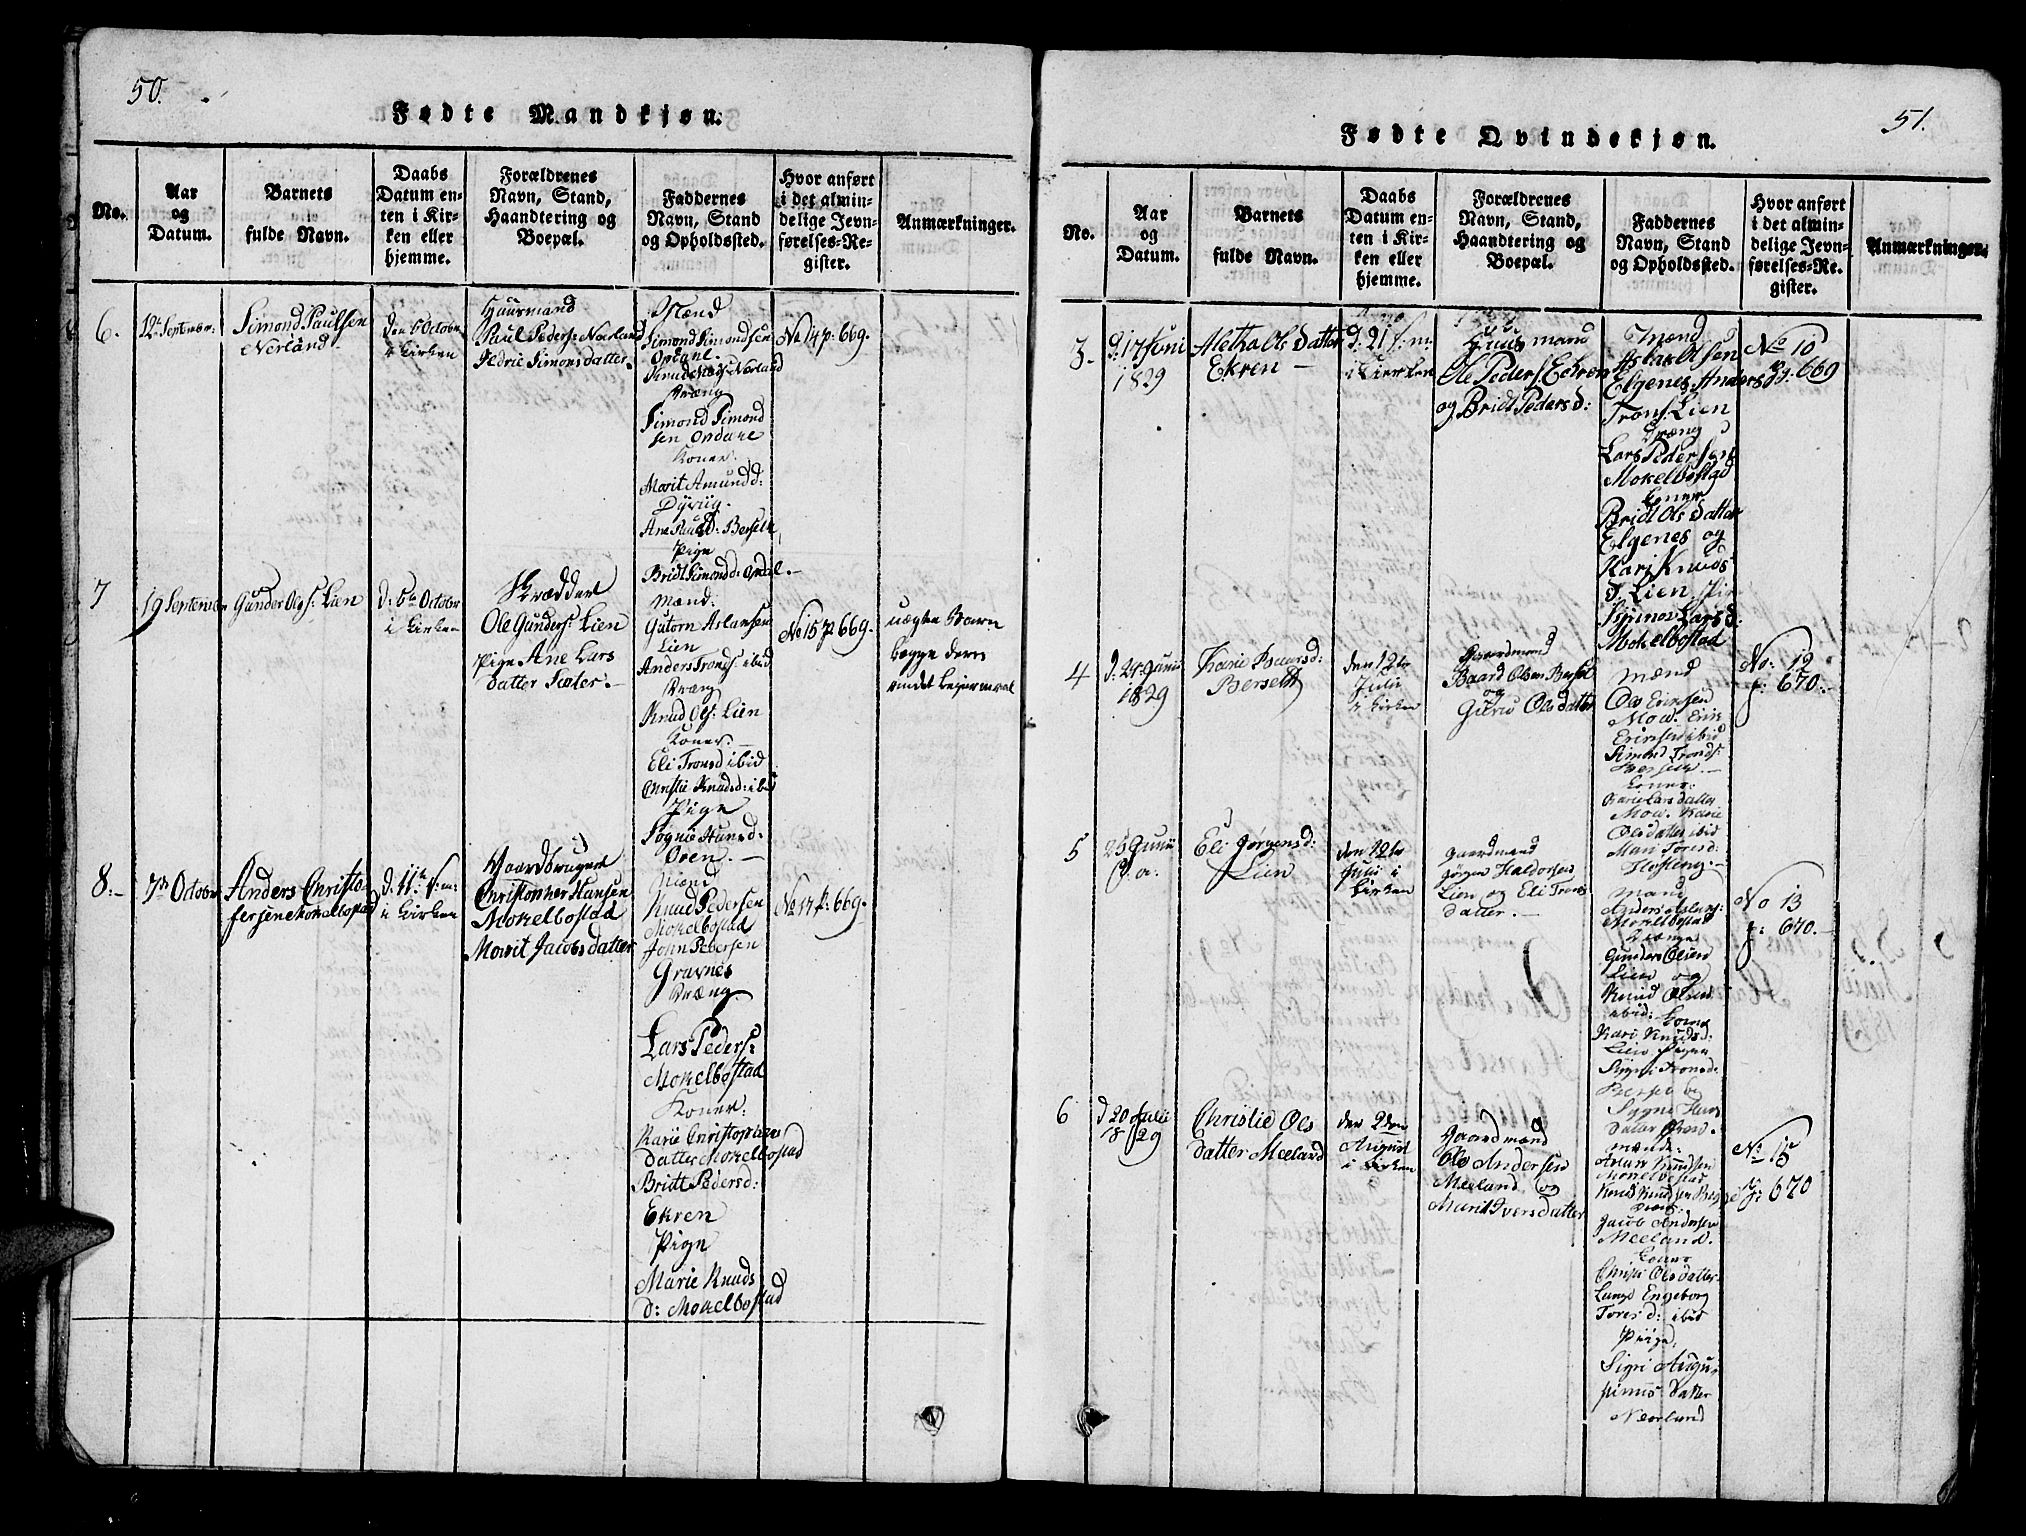 50.
Fødte Mandkjøn.
No.
Aar
og
Datum.
Barnets
fulde Navn.
Daabs
Datum en-
ten i Kir-
ken eller
hjemme.
Forældrenes
Navn, Stand,
Haandtering og
Boepæl.
Faddernes
Navn, Stand
og Opholdssted.
Hvor anført
i det almin-
delige Jevn-
førelses-Re-
gister.
Anmærkninger.
6.
12te September
Simond Paulsen
Nerland
i Kirken
Huusmand
Paul Peders: Nerland
Simonsdatter
Mænd
Simond Simondsen
Opdahl
Nerland
Dræng
Simond Simond
sen
Koner
Marit Amundd:
Ane Paulsd:
Pige
Bridt Simondd:
No 14 p: 669.
7
19 September
Gunder Ols: Lien
d: 5te Octobr
i Kirken
Skrædder
Ole Gunders: Lien
Pige Ane Lars
datter
Mænd:
Gutorn Aslaksen
Lien
Anders Tronds: ibid
Dræng
Knud Ols: Lien
Koner.
Eli Tronsd ibid
Christie Knudsd: ibid
Pige
Oren.
No 15 p 669.
uægte Barn
begge deres
8:
7de Octobr
Anders Christo
fersen Mokelbostad
d: 11te
i Kirken
Gaardbruger
Christopher Hansen
Mokelbostad
Marit Jacobsdatter
Mænd
Knud Pedersen
Mokelbostad
John Pedersen
Gravnes
Dræng
Lars Peders:
Mokelbostad
Koner:
Karie Christophers
datter Mokelbostad
Britt Pedersd:
Ekren
Pige
Marie Knuds
d: Mokelbostad
No 17 p: 669.
51.
Fødte Qvindekjøn.
No.
Aar
og
Datum.
Barnets
fulde Navn.
Daabs
Datum en-
ten i Kir-
ken eller
hjemme.
Forældrenes
Navn, Stand,
Haandtering og
Boepæl.
Faddernes
Navn, Stand
og Opholdssted.
Hvor anført
i det almin-
delige Jevn-
førelses-Re-
gister.
Anmærkninger.
3
d: 17 Juni
1829
Olsdatter
Ekren
d: 21
i Kirken
Huusmand
Ole Peders. Eckren
og Bridt Pedersd:
Mænd
Aslak Olsen
Elgenes. Anders
Trons. Lien
Dræng
Lars Pedersen
Mokelbostad
Koner
Bridt Olsdatter
Elgenes og
Kari Knuds
d. Lien. Pi
Larsd:
Mokelbostad
No 10
pg: 669
4
d: 24 Junii
1829
Baarsd:
Berset
den 12te
Julii
i Kirken
Gaardmand
Baard Olsen Berset
og
Olsdatter
Mænd
Ole Ericksen
Moe. Erik
Ericksen ibid
Simond Tronds:
Koner
Karie Larsdatter
Moe. Karie
Olsdatter ibid
Mari Toresd:
No: 12
p: 670.
5
25 Junii
Eli Jørgensd:
Lien
den 12te
Julii i
Kirken
Gaardmand
Jørgen Haldorsen
Lien og Eli Trons
datter.
Mænd
Mokelbostad
Drænge
Gunder Olsen
Lien og
Knud Olsen
ibid: Kone
Kari Knudsd:
Lien Piger
Tronsd:
No 13
p: 670.
6
d 20 Julii
1829
Christie Ols
datter Meeland
den 2den
August
i Kirken
Gaardmand
Ole Andersen
Meeland og
Marit Iversdatter
Mænd:
Knudsen
Mokelbostad
Knud Knudsen
Dræng:
Jacob Andersen
Meeland.
Koner
Olsdatter
Engeborg
Toresd: ibid
Pige.
Sigri Augus
tinus datter
Neerland
No 15
p: 670